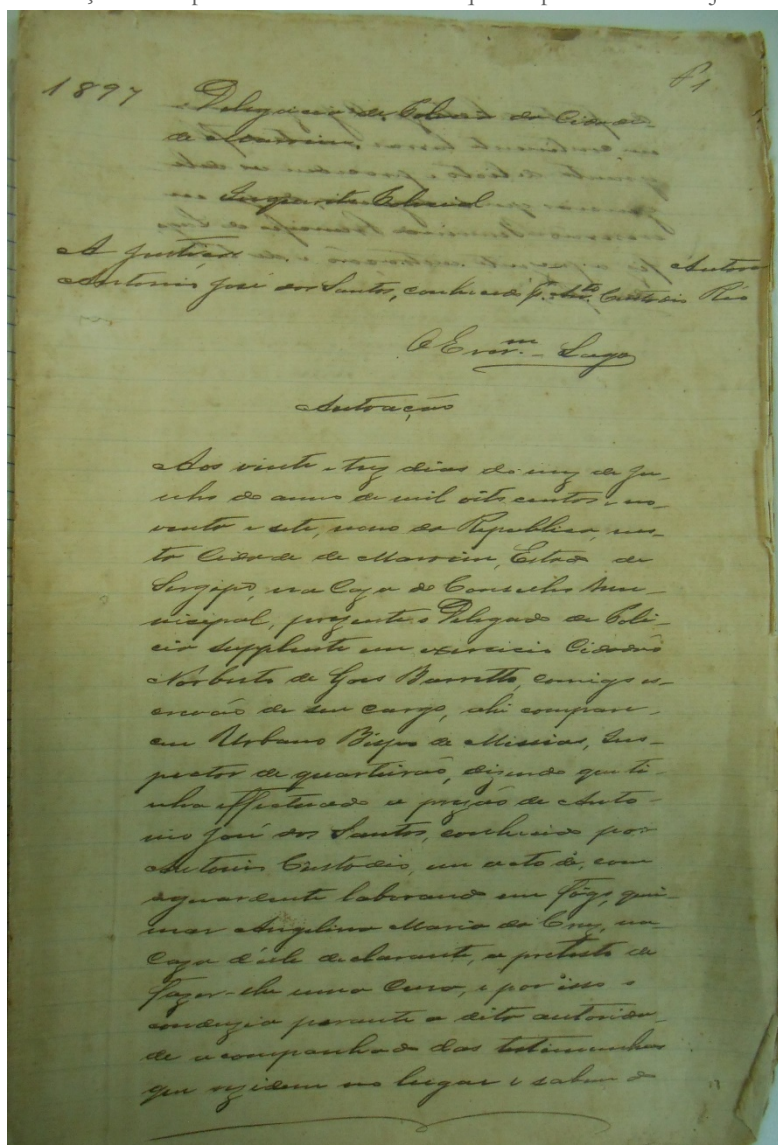 1897
Delegacia de Policia da Cidade
de Maroim.
Inquerito Policial
A Justiça Autora
Antonio José dos Santos, conhecido pr. Anto. Custodio Réo
O Escrm. Lago
Autoação
Aos vinte e trez dias do mez de Ju-
nho do anno de mil oito centos e no-
venta e sete, nono da Republica, nes-
ta Cidade de Maroim, Estado de
Sergipe, na Caza do Conselho Mu-
nicipal, prezente o Delegado de Poli-
cia supplente em exercicio Cidadão
Norberto de Goes Barretto, comigo es-
crivão de seu cargo, ahi compare-
ceu Urbano Bispo de Missias, Ins-
pector de quarteirão, dizendo que ti-
nha effectuado a prizão de Anto-
nio José dos Santos, conhecido por
Antonio Custodio, em acto de, com
aguardente laborando em fógo, quei-
mar Angelina Maria da Cruz, na
Caza d'elle declarante, a pretexto de
fazer-lhe uma Cura, e por isso o
conduzia perante a dita autorida-
de acompanhado das testimunhas
que rezidem no lugar e sabem do